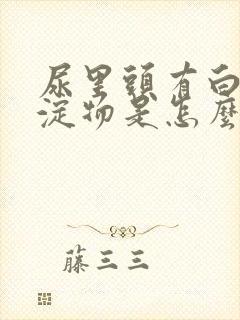 尿里頭有白
淀物是怎麼
藤三三